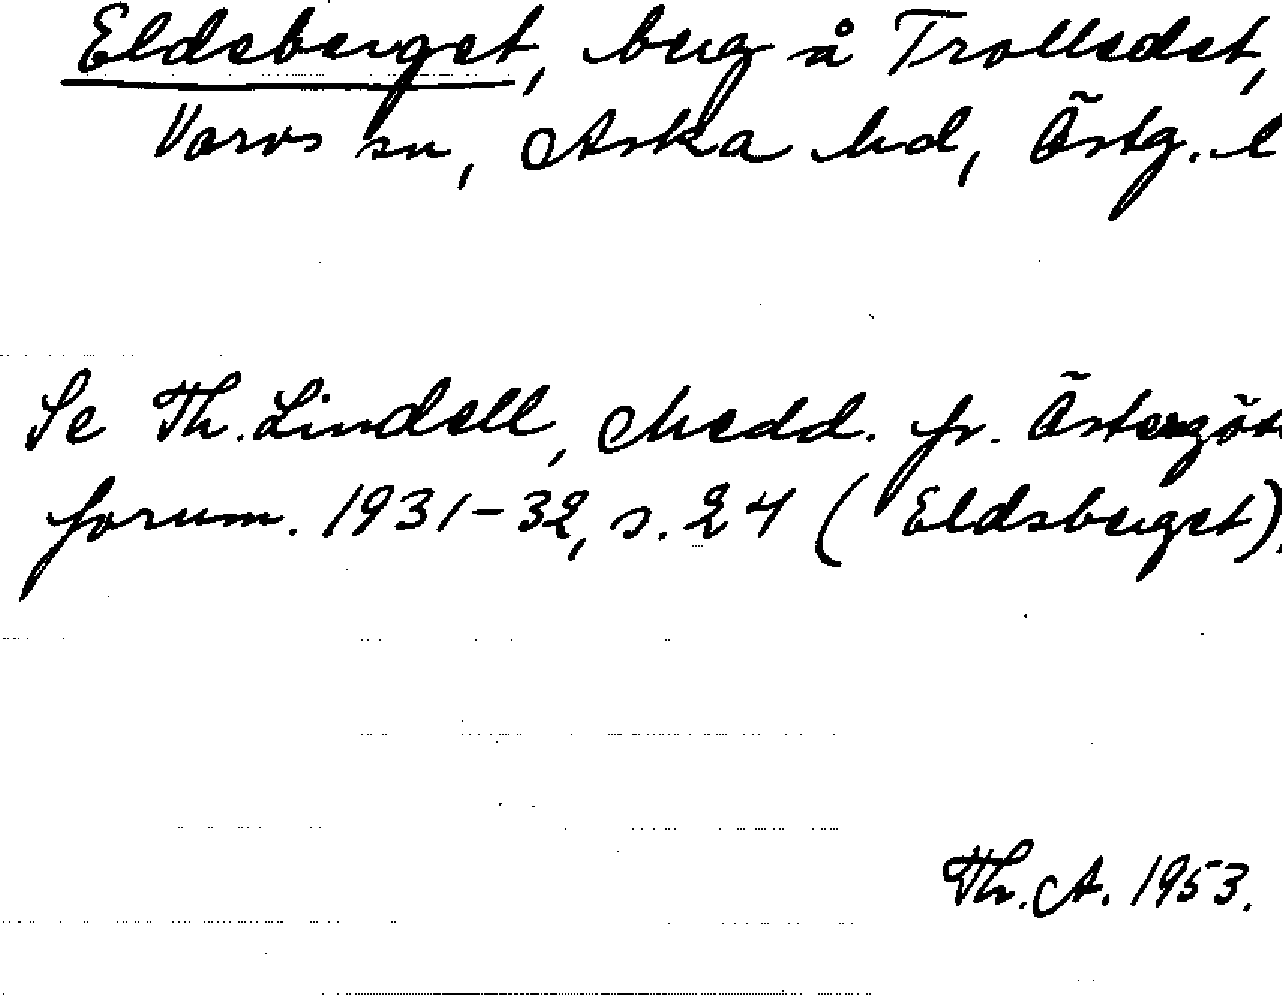 Eldsberget, berg å Trolledet,
Varvs sn, Aska hd, Östg. l
Se Th. Lindell, Medd. fr. Östergöt
forum. 1931-32, s. 24 (Eldsberget).
Th. A. 1953.